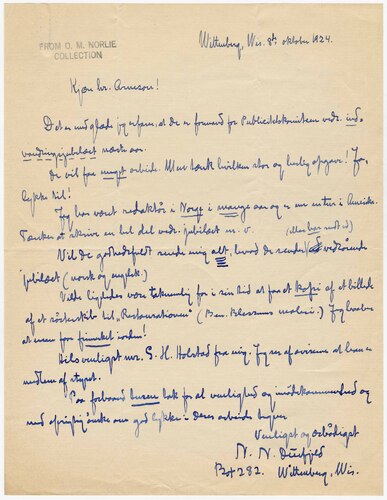 FROM O. M. NORLIE
COLLECTION
Wittenberg, Wis. 8de oktober 1924.
Kjære hr. Arneson!
Det er med glæde jeg erfarer, at de er formand for Publicitetskomiteen vedr. ind-
vandringsjubilæet næste aar.
De vil faa meget arbeide. Men tænk hvilken stor og herlig opgave! Ja,
lykke til!
Jeg har været redaktør i Norge i mange aar og er nu enten i Amerika.
Tænker at skrive en hel del vedr. jubilæet m. v. (alles har not ed)
Vil De godhedsfuldt sende mig alt, hvad De sender vedrørende
jubilæet (norsk og engelsk.)
Vilde ligeledes være taknemlig for i sin tid at faa et kopi af et billede
af et "Restaurationen" (Ben. Blessums maleri.) Jeg
at men for finnested inden!
Hils venligst mr. G. H. Holstad fra mig. Jeg ser af avisene at han er
medlem af styret.
Paa forhaand tusen tak for al venlighed og imødekommenhed og
med oprigtig ønske om god lykke i Deres arbeide tegner
Venligst og ærbødigst
N. N.
Box 282. Wittenberg, Wis.